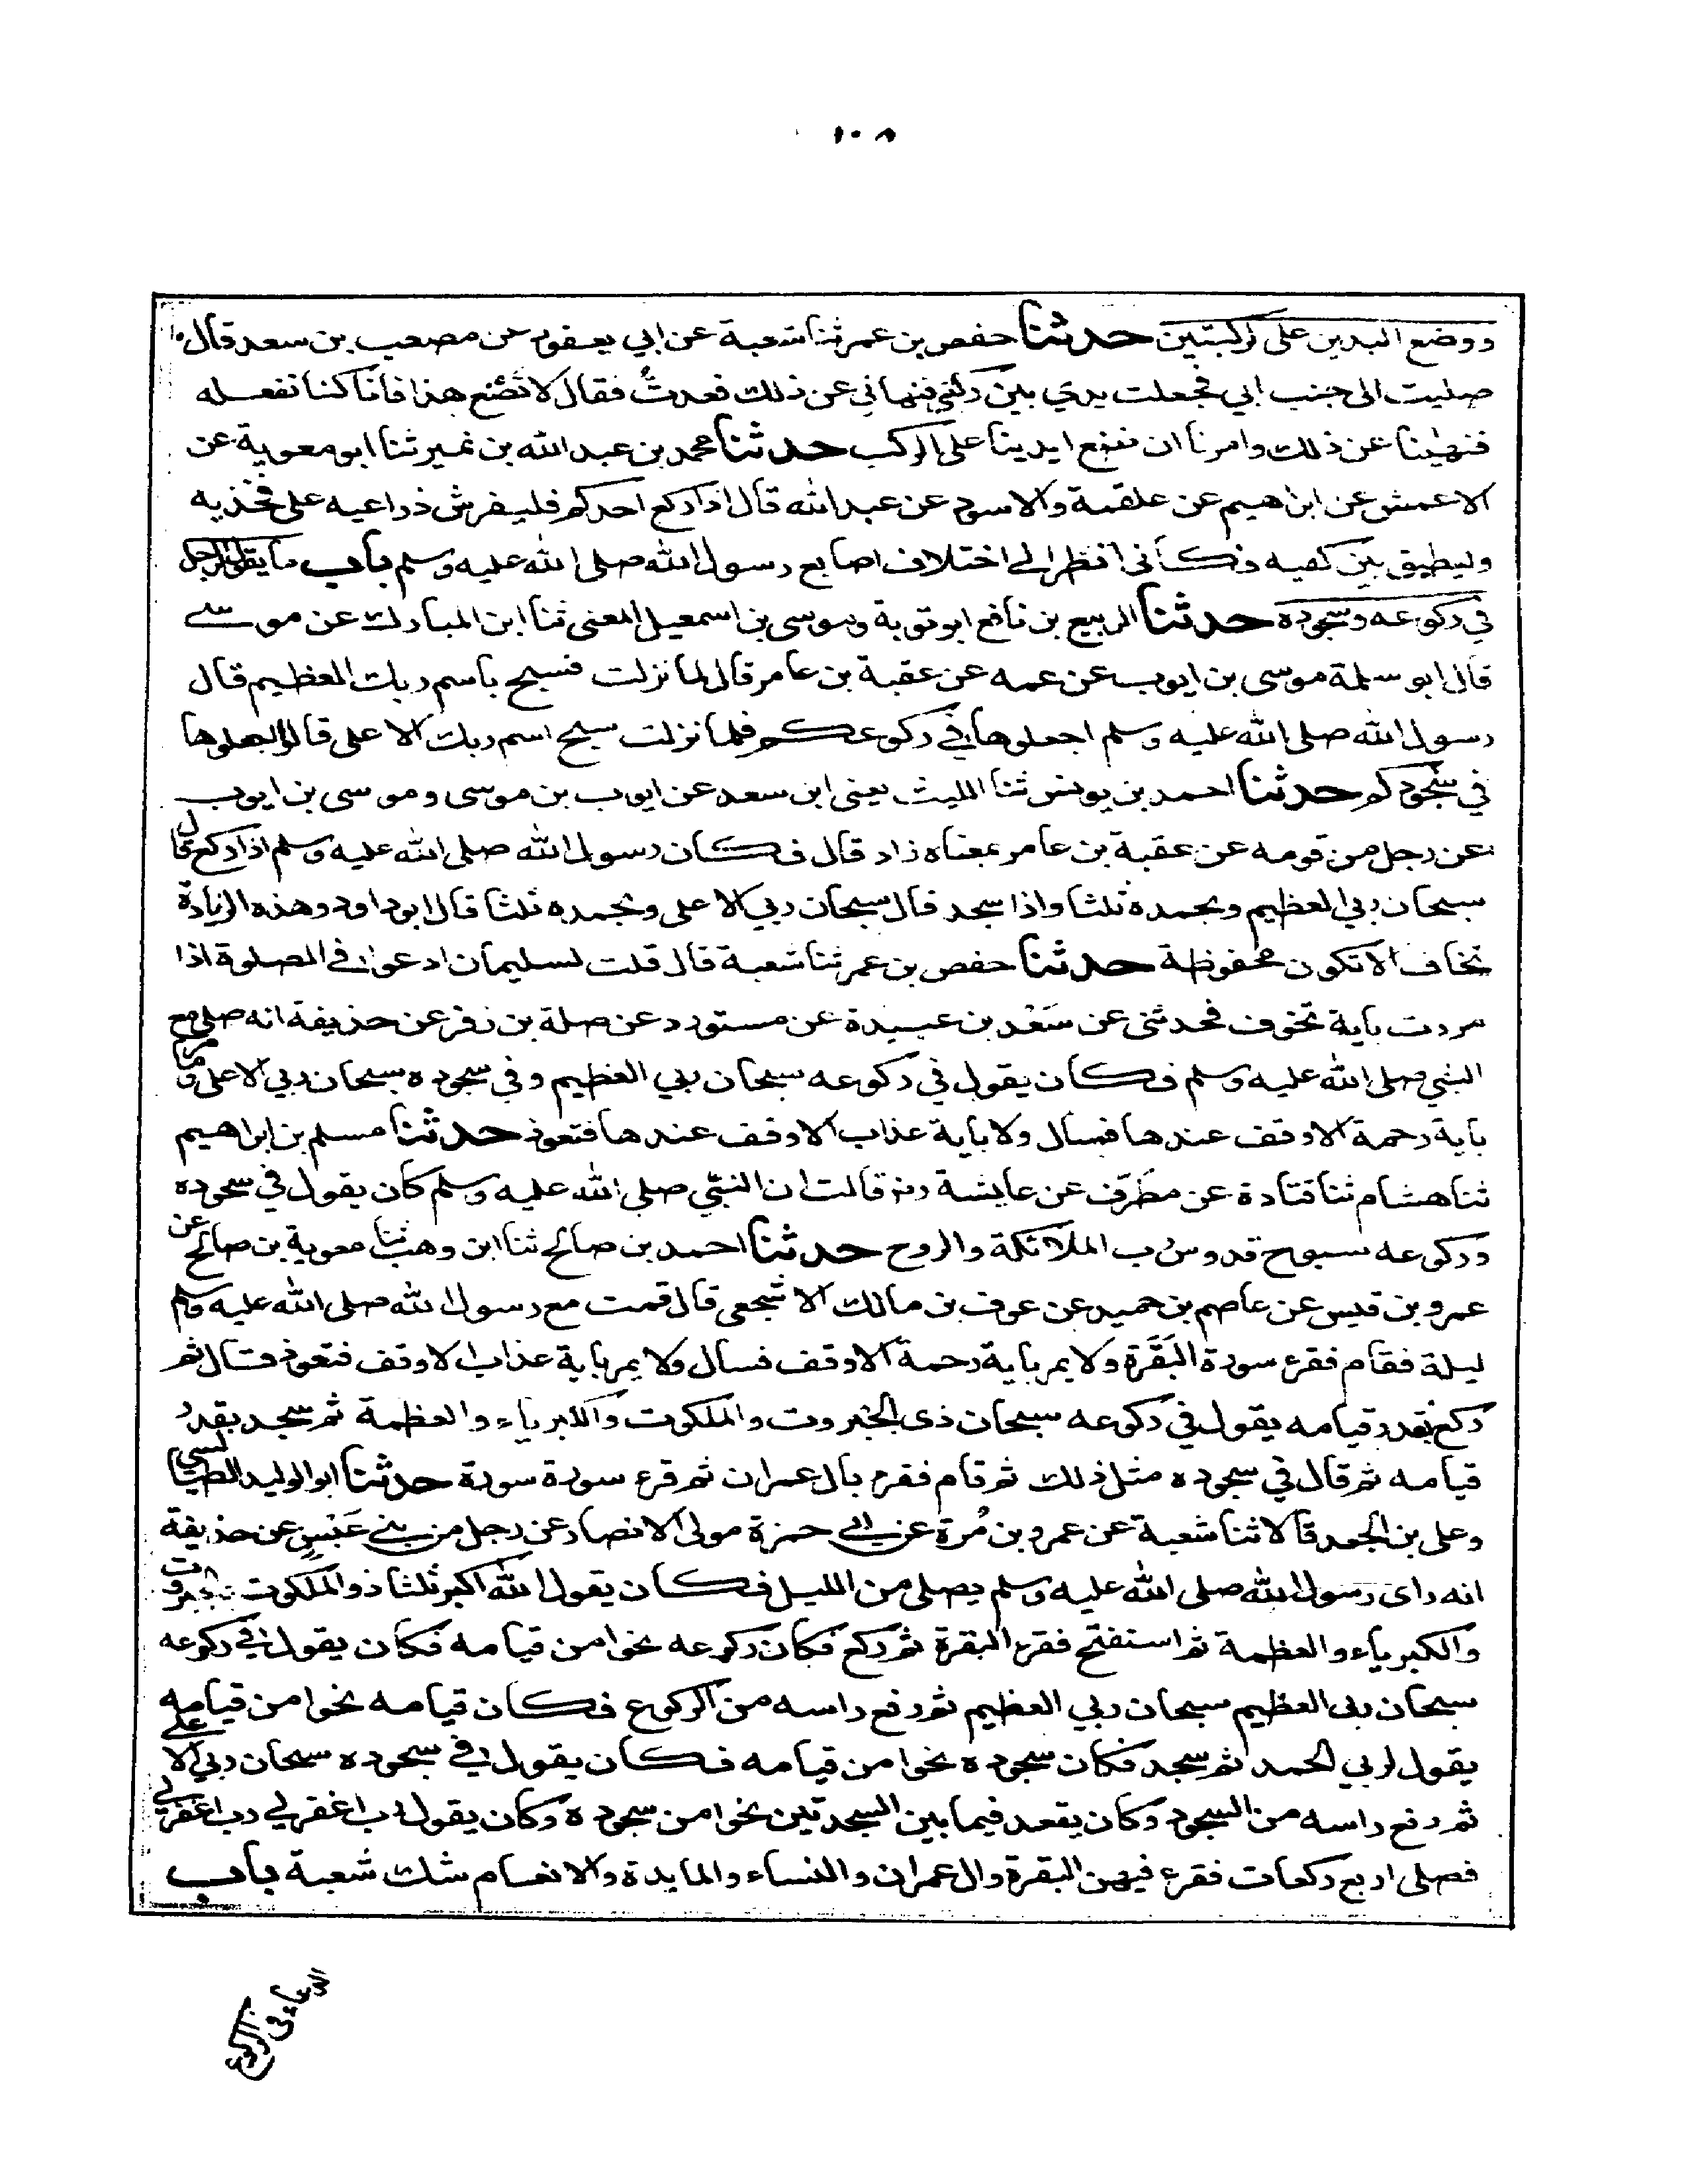 ١٠٨
ووضع اليدين على الركبتين حدثنا حفص بن عمر ثنا شعبة عن ابي يعفور عن مصعب بن سعد قال
صليت الى جنب ابي فجعلت يدي بين ركبتي فنهاني عن ذلك فعدتُ فقال لا تصنع هذا فانا كنا نفعله
فنهينا عن ذلك وامرنا ان نضع ايدينا على الركب حدثنا محمد بن عبد الله بن نمير ثنا ابو معوية عن
الاعمش عن ابراهيم عن علقمة والاسود عن عبد الله قال اذا ركع احدكم فليفرش ذراعيه على فخذيه
وليطبق بين كفيه فكأني انظر الي اختلاف اصابع رسول الله صلى الله عليه وسلم باب ما يقول الرجل
في ركوعه وسجوده حدثنا الربيع بن نافع ابو توبة وموسى بن اسمعيل المعنى ثنا ابن المبارك عن موسى
قال ابو سلمة موسى بن ايوب عن عمه عن عقبة بن عامر قال لما نزلت فسبح باسم ربك العظيم قال
رسول الله صلى الله عليه وسلم اجعلوها في ركوعكم فلما نزلت سبح اسم ربك الاعلى قال اجعلوها
في سجودكم حدثنا احمد بن يونس ثنا الليث يعنى ابن سعد عن ايوب بن موسى و موسى بن ايوب
عن رجل من قومه عن عقبة بن عامر بمعناه زاد قال فكان رسول الله صلى الله عليه وسلم اذا ركع قال
سبحان ربي العظيم وبحمده ثلثا واذا سجد قال سبحان ربي الاعلى وبحمده ثلثا قال ابو داود وهذه الزيادة
نخاف الا تكون محفوظة حدثنا حفص بن عمر ثنا شعبة قال قلت لسليمان ادعوا في الصلوة اذا
مررت باية تخوف فحدثنى عن سَعْد بن عبيدة عن مستورد عن صلة بن زفر عن حذيفة انه صلى مع
النبي صلى الله عليه وسلم فكان يقول في ركوعه سبحان ربي العظيم وفي سجوده سبحان ربي الاعلى وما مر
باية رحمة الا وقف عندها فسأل ولا باية عذاب الا وقف عندها فتعوذ حدثنا مسلم بن ابراهيم
ثنا هشام ثنا قتادة عن مطَرّف عن عايشة رضـ قالت ان النبي صلى الله عليه وسلم كان يقول في سجوده
وركوعه سبوح قدوس رب الملائكة والروح حدثنا احمد بن صالح ثنا ابن وهب ثنا معوية بن صالح عن
عمرو بن قيس عن عاصم بن حميد عن عوف بن مالك الاشجعى قال قمت مع رسول الله صلى الله عليه وسلم
ليلة فقام فقرء سورة البَقَرَة ولا يمر باية رحمة الا وقف فسال ولا يمر باية عذاب الا وقف فتعوذ قال ثم
ركع بقدر قيامه يقول في ركوعه سبحان ذى الجبروت والملكوت والكبرياء والعظمة ثم سجد بقدر
قيامه ثم قال في سجوده مثل ذلك ثم قام فقرء بال عمران ثم قرء سورة سورة حدثنا ابو الوليد الطيالسي
وعلى بن الجعد قالا ثنا شعبة عن عمرو بن مُرة عن ابي حمزة مولى الانصار عن رجل من بني عَبْسٍ عن حذيفة
انه راى رسول الله صلى الله عليه وسلم يصلى من الليل فكان يقول الله اكبر ثلثا ذو الملكوت والجبروت
والكبرياء والعظمة ثم استفتح فقرء البقرة ثم ركع فكان ركوعه نحوا من قيامه فكان يقول في ركوعه
سبحان ربى العظيم سبحان ربي العظيم ثم رفع راسه من الركوع فكان قيامه نحوا من قيامه
يقول لربي الحمد ثم سجد فكان سجوده نحوا من قيامه فكان يقول في سجوده سبحان ربي الاعلى
ثم رفع راسه من السجود وكان يقعد فيما بين السجدتين نحوا من سجوده وكان يقول رب اغفر لي رب اغفر لي
فصلى اربع ركعات فقرء فيهن البقرة وال عمران والنساء والمايدة والانعام شك شعبة باب
الدعاء في الركوع